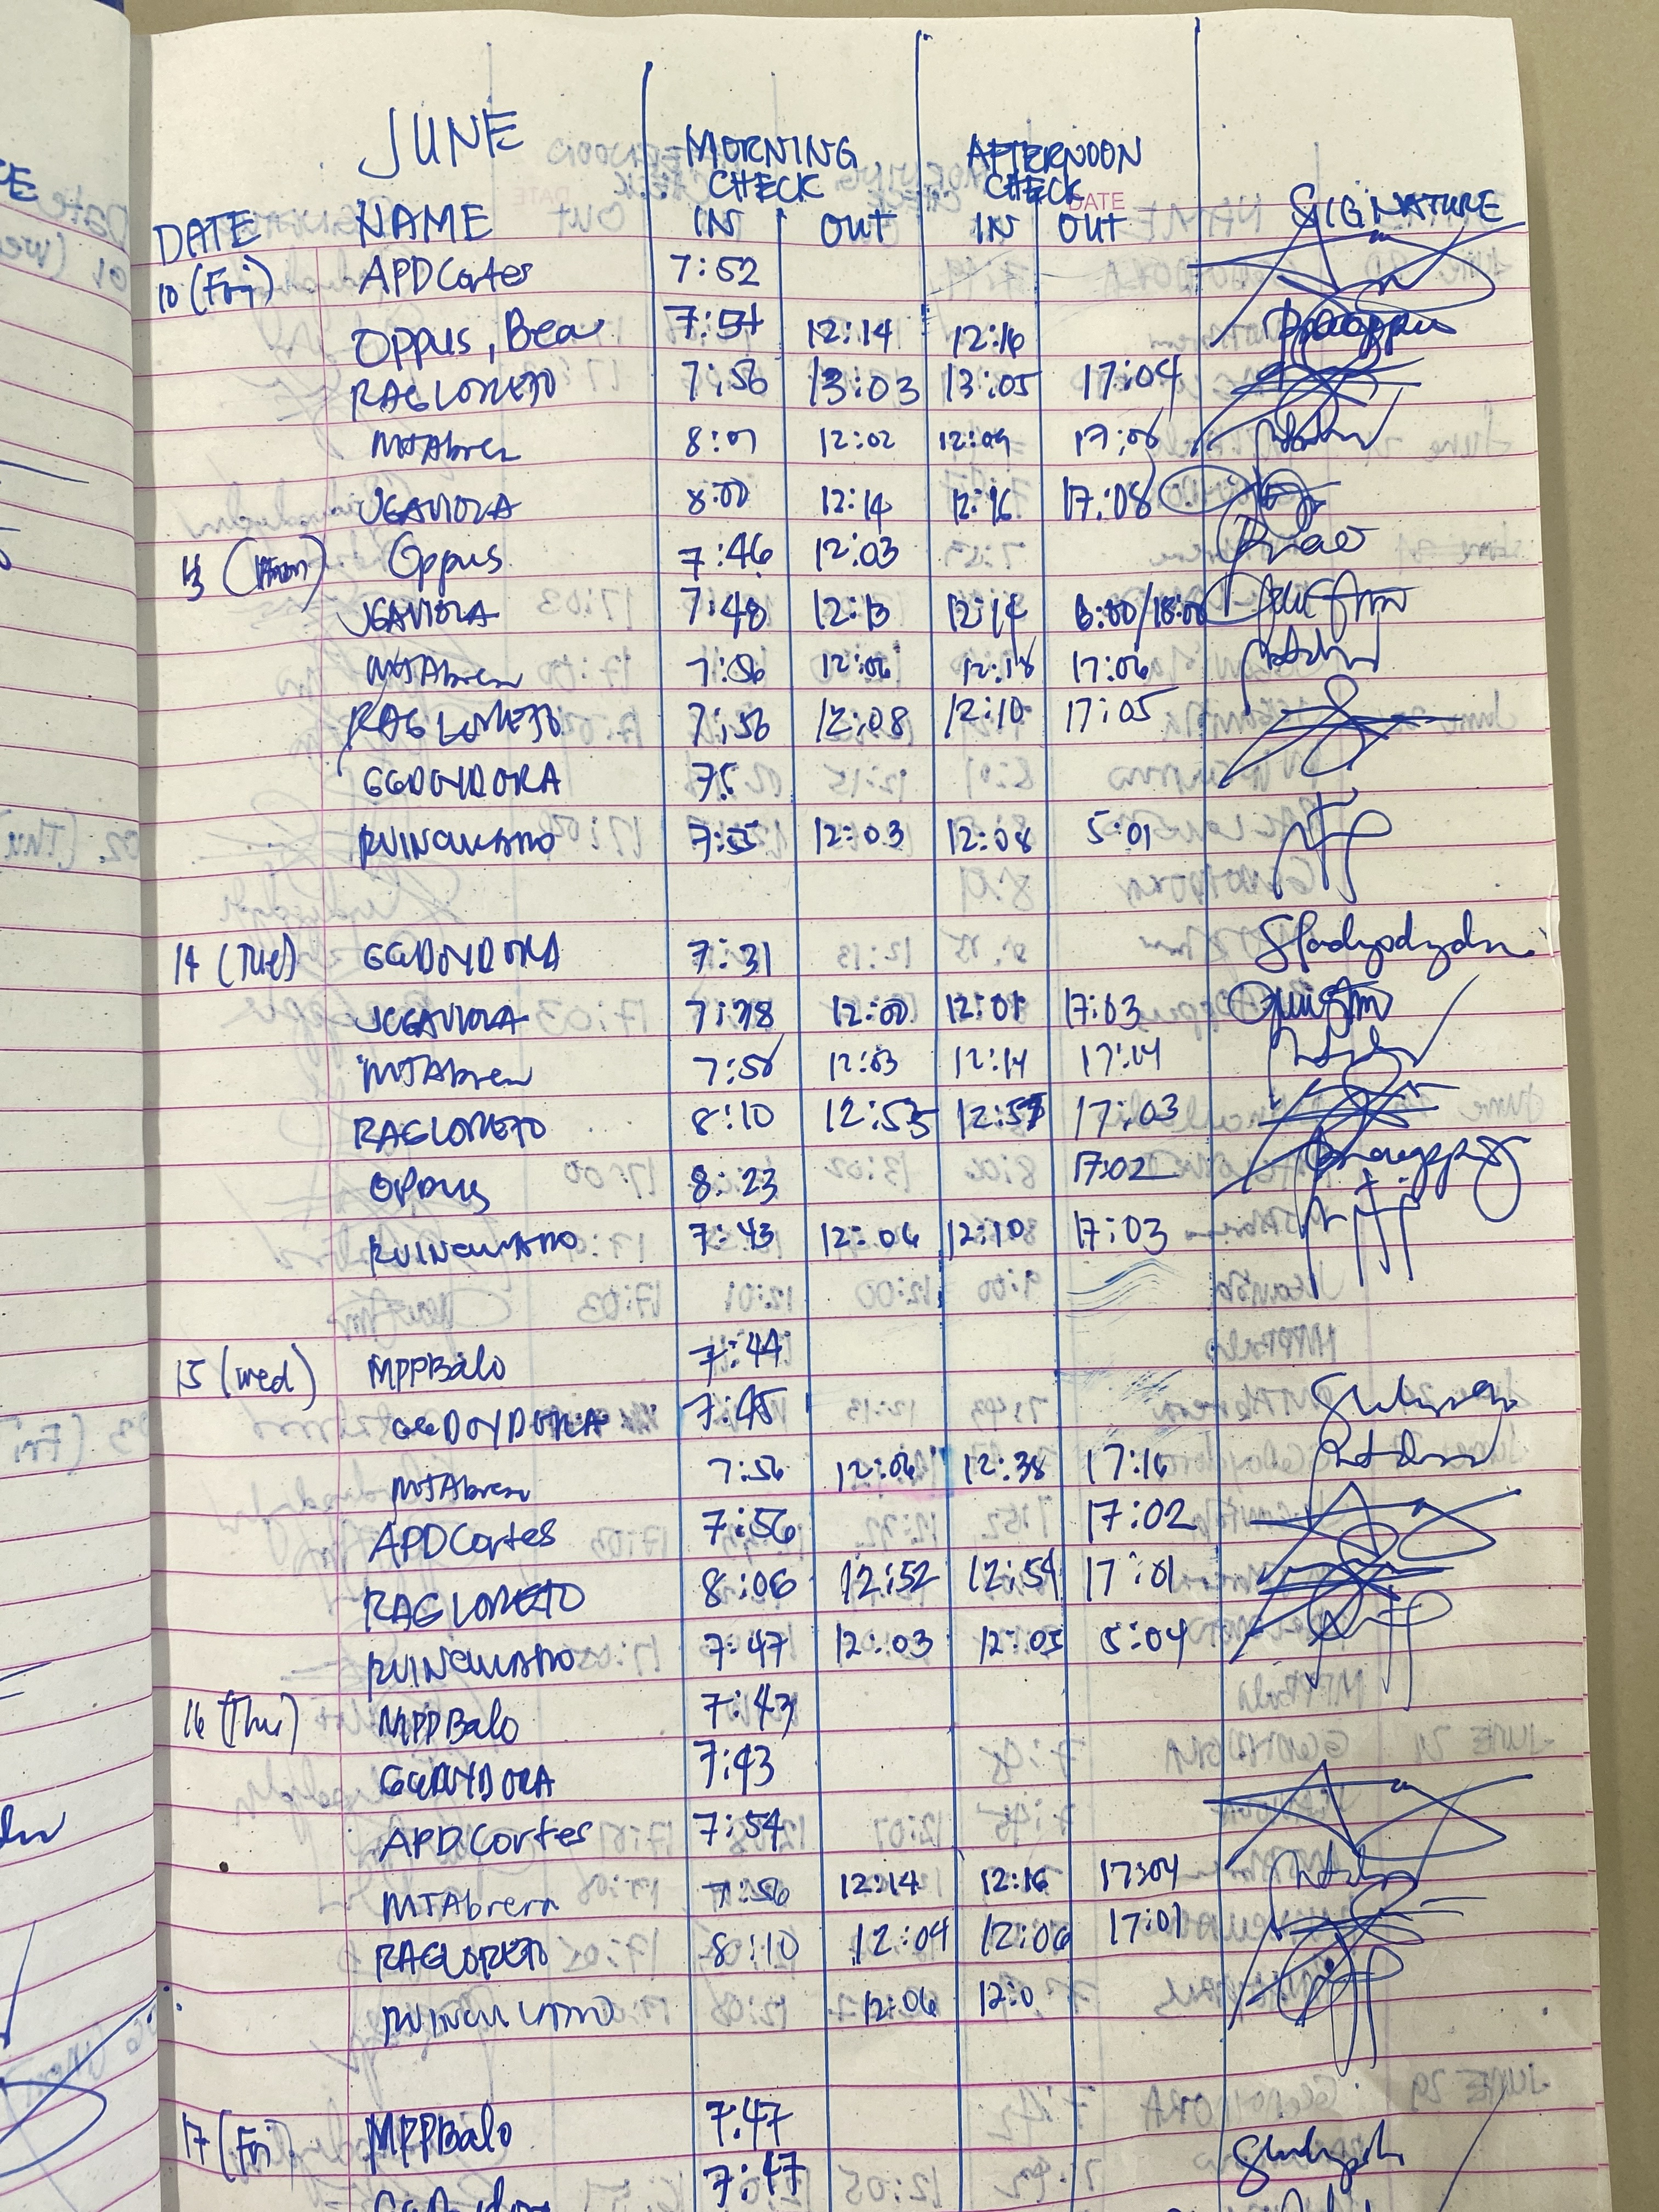 JUNE
MORNING CHECK AFTERNOON CHECK
DATE
DATE NAME IN OUT IN OUT SIGNATURE
10 (Fri) APDCortes 7:52
Oppus, Bea 12:14 12:16
RAGLORETO 7:56 13:03 13:05 17:04
MJAbrera 12:02 12:09 17:06
JGAVIOLA 8:00 12:14 12:16 17:08
13 (Mon) Oppus 7:46 12:03
JGAVIOLA 7:48 12:13 12:14 /18:00
MJAbrera 7:56 12:06 12:18 17:06
RAGLORETO 7:56 12:08 12:10 17:05
GGDOYDORA 75
RVINCULADO 7:55 12:03 12:08 5:01
14 (Tue) GGDOYDORA 7:31
JCGAVIOLA 7:38 12:00 12:01 17:03
MJAbrera 12:03 12:14 17:14
RAGLORETO 8:10 12:53 12:57 17:03
OPPUS 8:23 17:02
RVINCULADO 7:43 12:06 12:10 17:03
15 (Wed) MPPBalo 7:44
GGDOYDORA 7:45
MJAbrera 7:56 12:06 12:38 17:16
APDCortes 7:56 17:02
RAGLORETO 8:06 12:52 12:54 17:01
RVINCULADO 7:47 12:03 12:05 5:04
16 (Thu) MPPBalo 7:43
GGDOYDORA 7:43
APDCortes 7:54
MJAbrera 7:56 12:14 12:16 17:04
RAGLORETO 8:10 12:04 12:06 17:01
RVINCULADO 12:06 12:0
17 (Fri) MPPBalo 7:47
7:47